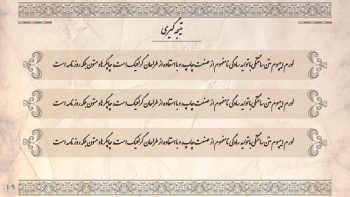 نتیجه گیری
لورم ایپسوم متن ساختگی با تولید سادگی نامفهوم از صنعت چاپ و با استفاده از طراحان گرافیک است. چاپگرها و متون بلکه روزنامه است
لورم ایپسوم متن ساختگی با تولید سادگی نامفهوم از صنعت چاپ و با استفاده از طراحان گرافیک است. چاپگرها و متون بلکه روزنامه است
لورم ایپسوم متن ساختگی با تولید سادگی نامفهوم از صنعت چاپ و با استفاده از طراحان گرافیک است. چاپگرها و متون بلکه روزنامه است